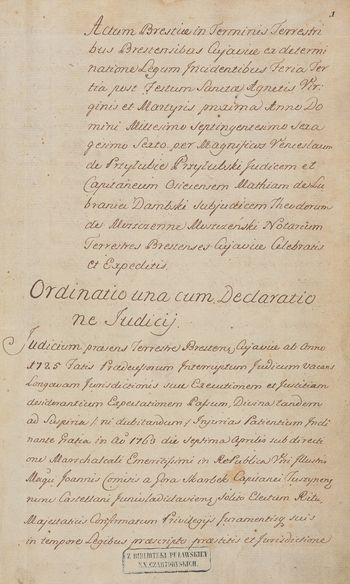 1
Actum Brestiae in Terminis Terrestri
bus Brestensibus Cujaviae ex determi
natione Legum Incidentibus Feria Ter
tia post Festum Sanctae Agnetis Vir
ginis et Martyris proxima Anno Do
mini Millesimo Septingentesimo Sexa
gesimo Sexto per Magnificos Venceslaum
de Przyłubie Przyłubski Judicem et
Capitaneum Mathiam de Lu
braniec Dambski Subjudicem Theodorum
de Notarium
Terrestres Brestenses Cujaviae Celebratis
et Expeditis.
Ordinatio una cum Declaratio
ne Judicij
Judicium praesens Terrestre Brestens, Cujaviae ab Anno
1725 Fatis Praedecessorum Interruptum Judicum vacans
Longaevam Jurisdictionis suae Executionem et Justitiam
desiderantium Expectationem Passum, Divina tandem
ad Suspiria / ni dubitandum / Injurias Patientium Indi
nante Gratia in Ao 1760 die Septima Aprilis sub directi
one Marchalcali Emeritissimi in Republica Viri Illustris
Joannis Comitis a Góra Skarbek Capitanei
nunc Castellani Juniwladislaviens, Solito Electum Ritu
Majestatis Confirmatum Privilegijs Juramentisq suis
in tempore Legibus praescripto praestitis et Jurisdictione
Z BIBLIOTEKI PUŁAWSKIEY
X.X. CZARTORYSKICH.